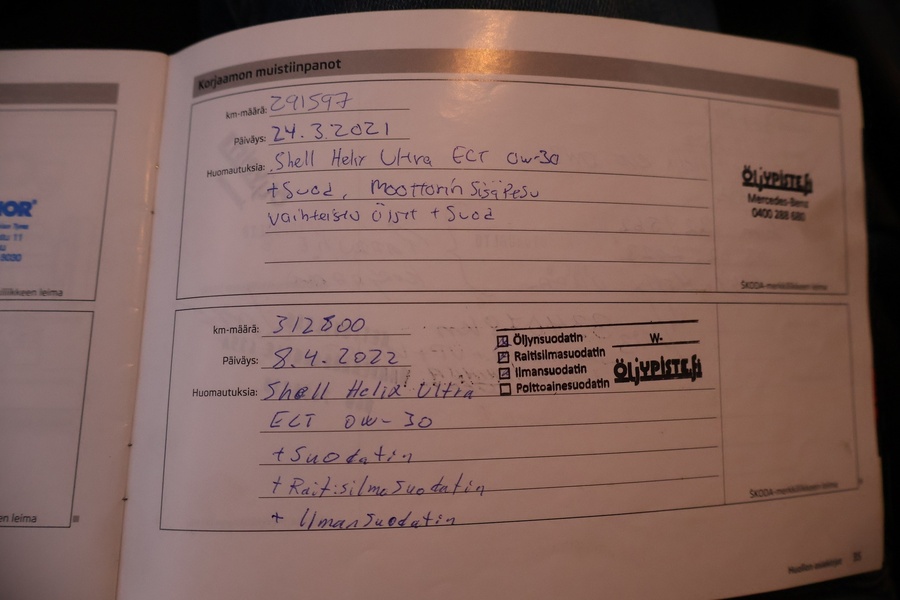 Korjaamon muistiinpanot
km-määrä: 291597
Päiväys: 24.3.2021
Huomautuksia: Shell Helix Ultra ECT 0w-30
+Suod, Moottorin SisäPesu
vaihteisto Öljyt +Suod
ÖLJYPISTE.fi
Mercedes-Benz
0400 288 680
ŠKODA-merkkiliikkeen leima
km-määrä: 312800
Päiväys: 8.4.2022
Huomautuksia: Shell Helix Ultra
ECT 0w-30
+Suodatin
+Raitisilmasuodatin
+ Ilmansuodatin
Öljynsuodatin
Raitisilmasuodatin
Ilmansuodatin
Polttoainesuodatin
W-
ÖLJYPISTE.fi
ŠKODA-merkkiliikkeen leima
Huollon asiakirjat 35
NOR